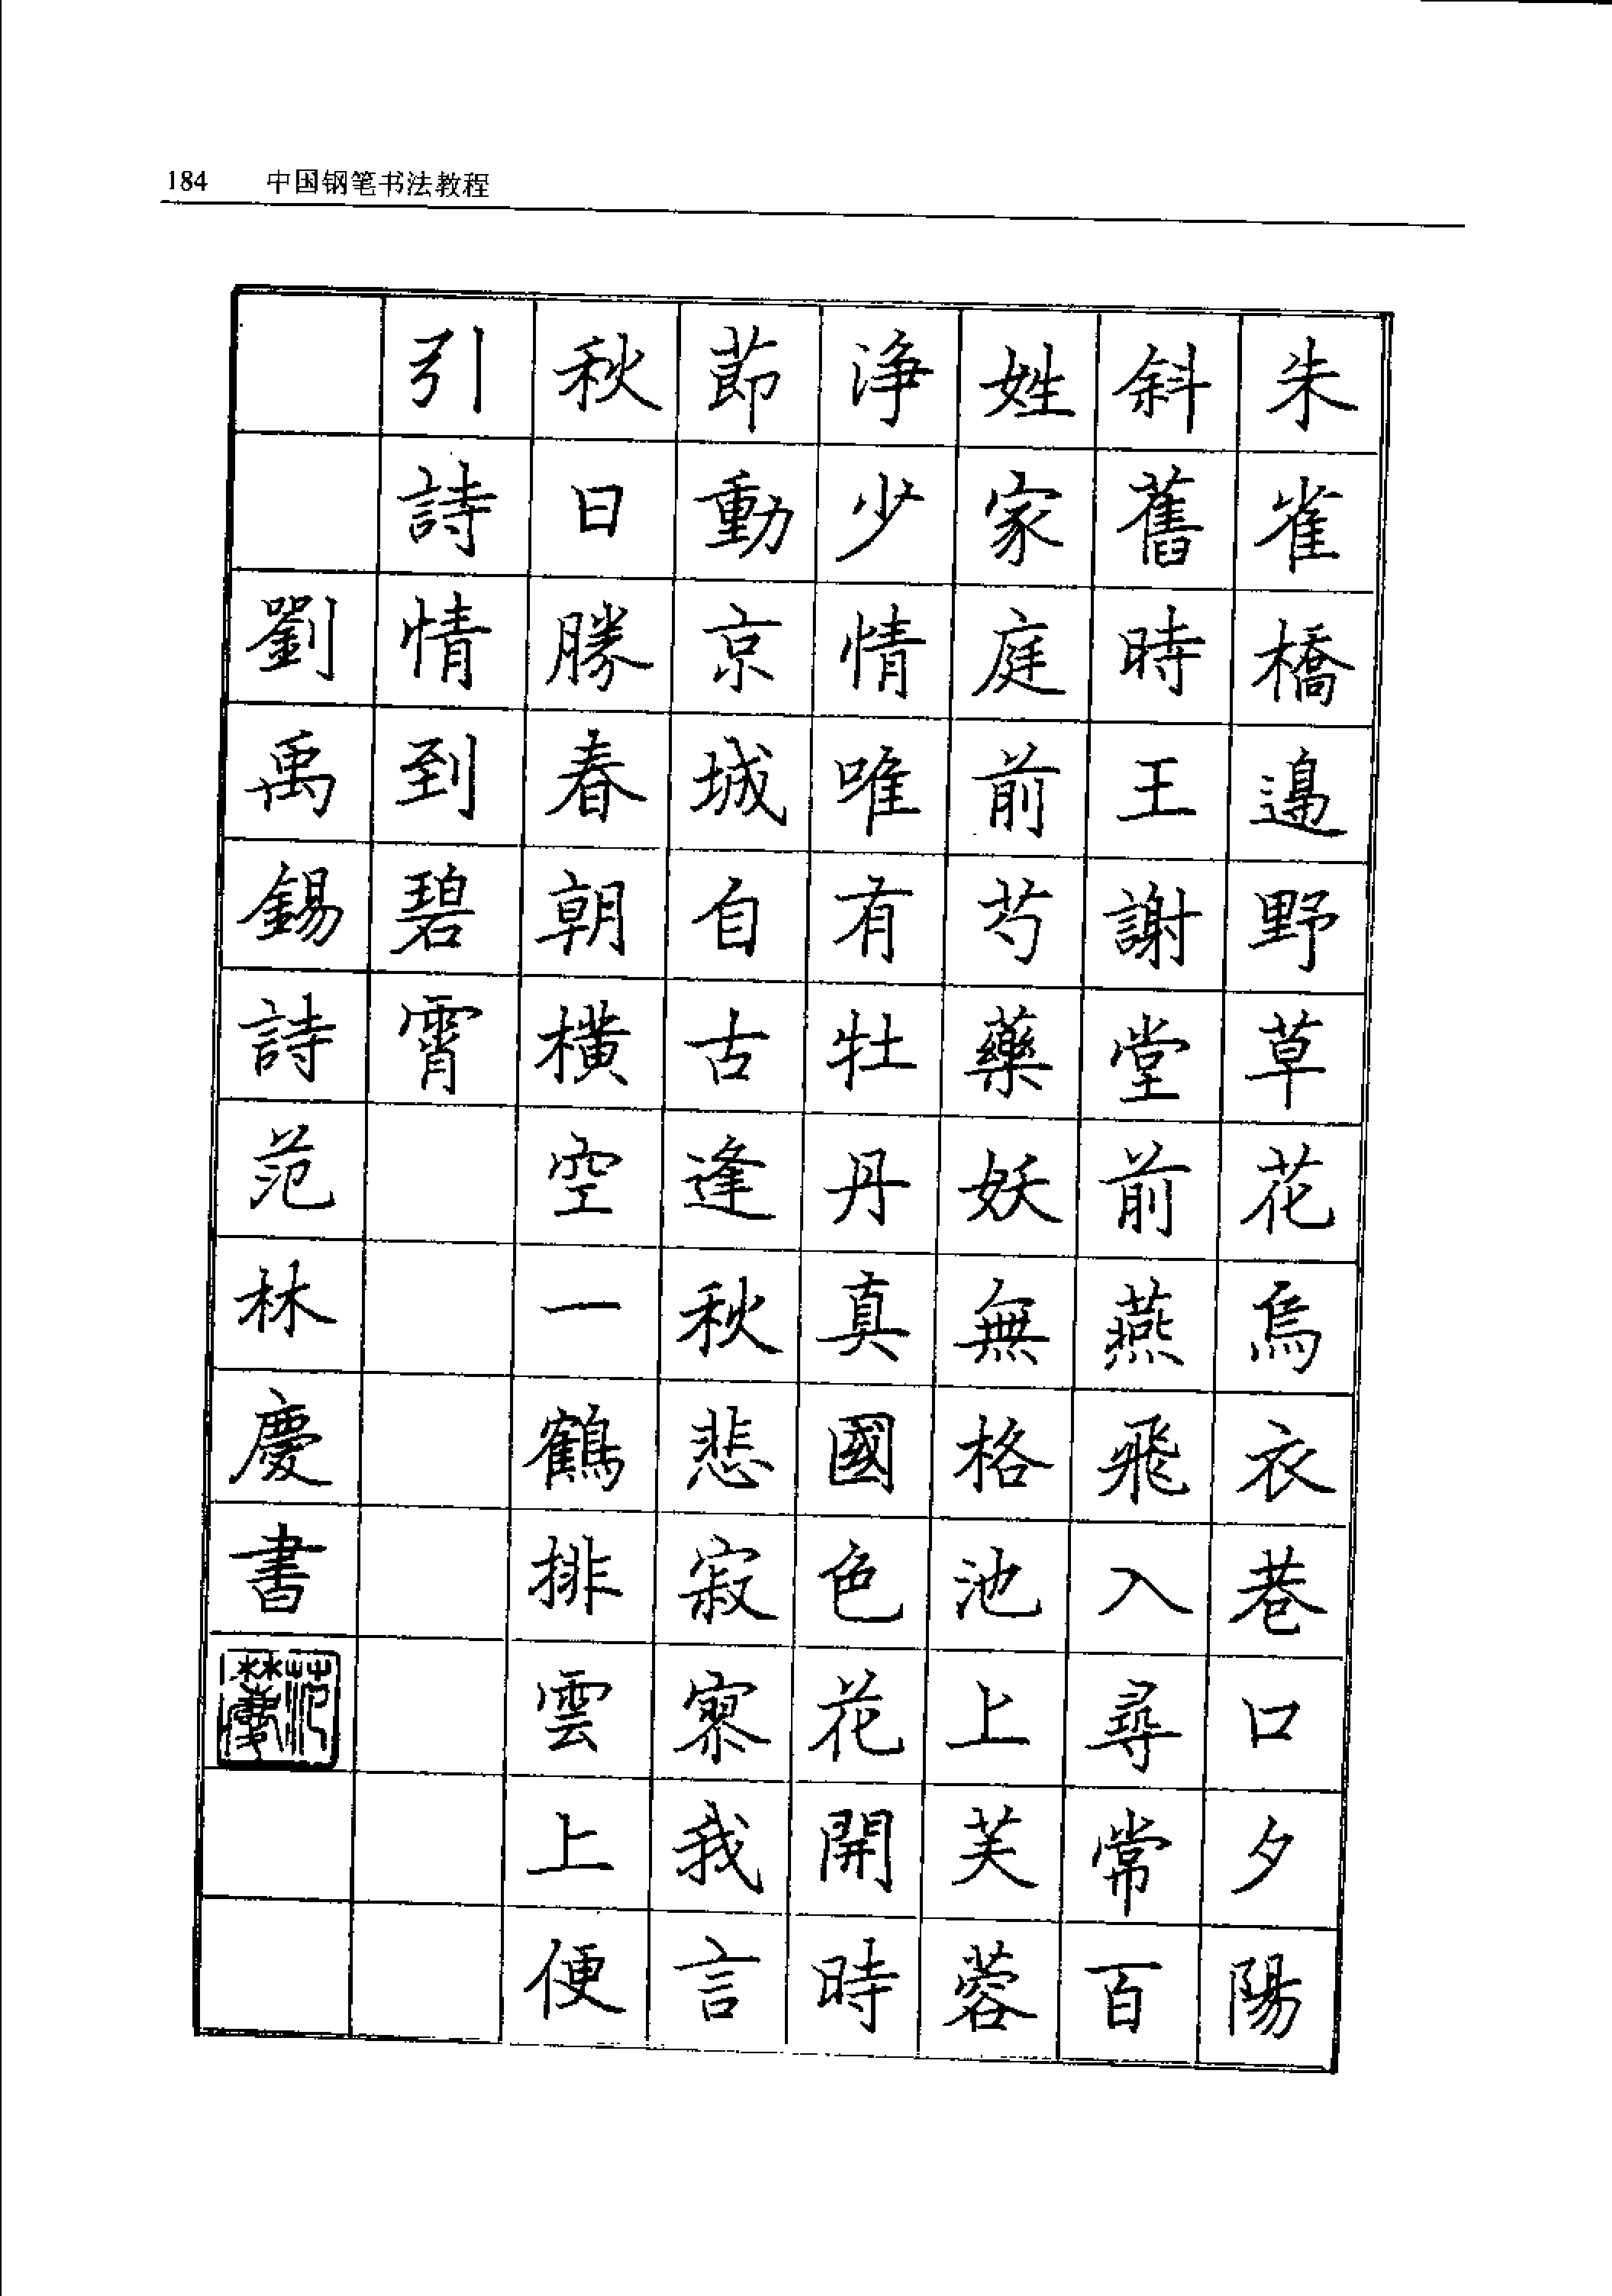 184 中国钢笔书法教程
朱雀橋邊野草花烏衣巷口夕陽
斜舊時王謝堂前燕飛入尋常百
姓家庭前芍藥妖無格池上芙蓉
淨少情唯有牡丹真國色花開時
節動京城自古逢秋悲寂寥我言
秋日勝春朝橫空一鶴排雲上便
引詩情到碧霄
劉禹錫詩范林慶書
范林慶